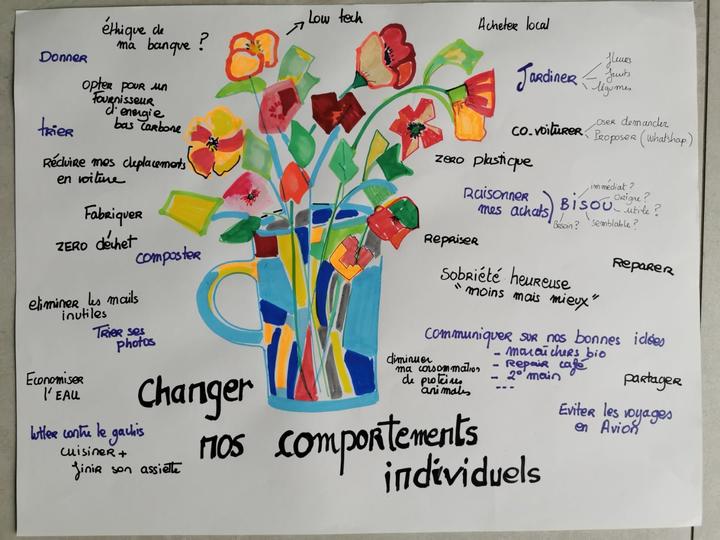 Low tech
éthique de
ma banque ?
Acheter local
Donner
Jardiner
fleurs
fruits
légumes
Opter pour un
fournisseur
d'énergie
bas carbone
trier
co-voiturer
oser demander
Proposer (whatshap)
zéro plastique
Réduire mes déplacements
en voiture
Raisonner
mes achats
BISOU
immédiat ?
origine ?
utile ?
semblable ?
Besoin ?
Fabriquer
zéro déchet
composter
repriser
Reparer
Sobriété heureuse
"moins mais mieux"
eliminer les mails
inutiles
Trier ses
photos
Communiquer sur nos bonnes idées
- maraîchers bio
- Repair café
- 2e main
- ---
diminuer
ma consommation
de protéines
animales
partager
Economiser
l'EAU
Eviter les voyages
en Avion
lutter contre le gachis
cuisiner +
finir son assiette
Changer
nos comportements
individuels